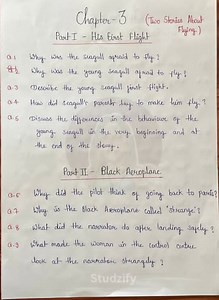 Chapter-3
(Two Stories About
Flying.)
Part I - His First Flight
Q.1 Why was the seagull afraid to fly?
Q.2 Why was the young seagull afraid to fly?
Q.3 Describe the young seagull first flight.
Q.4 How did seagull's parents try to make him fly?
Q.5 Discuss the differences in the behaviour of the
young seagull in the very beginning and at
the end of the story.
Part II - Black Aeroplane
Q.6 Why did the pilot think of going back to paris?
Q.7 Why is the black Aeroplane called 'strange'?
Q.8 What did the narrator do after landing safely?
Q.9 What made the woman in the control centre
look at the narrator strangely?
Studzify